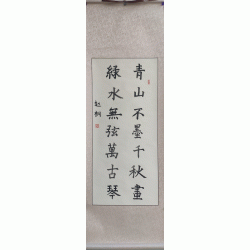 青山不墨千秋畫
綠水無弦萬古琴